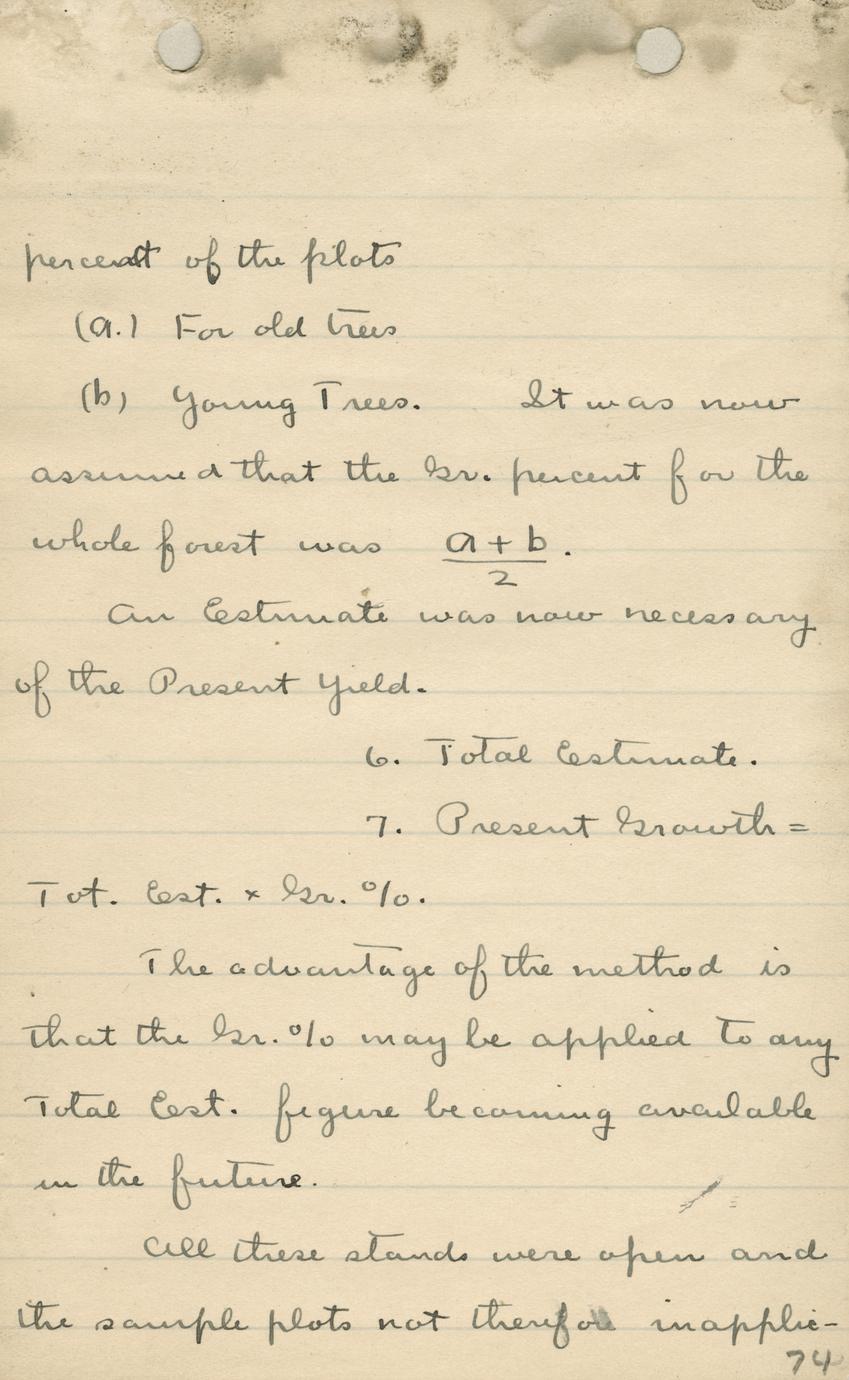 percent of the plots
(a.) For old trees
(b) Young Trees. It was now
assumed that the Gr. percent for the
whole forest was a + b .
2
An Estimate was now necessary
of the Present Yield.
6. Total Estimate.
7. Present Growth =
Tot. Est. × Gr. %.
The advantage of the method is
that the Gr. % may be applied to any
Total Est. figure becoming available
in the future.
All these stands were open and
the sample plots not therefore inapplic-
74